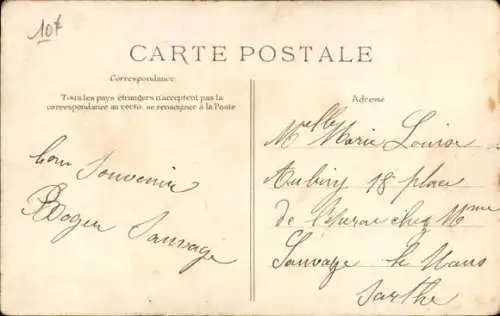 10f
CARTE POSTALE
Correspondance
Tous les pays étrangers n'acceptent pas la
correspondance au recto, se renseigner à la Poste
Adresse
bon Souvenir
Roger Sauvage
Melle Marie Louise
Aubiny 18 place
de l' chez Mme
Sauvage le Mans
Sarthe